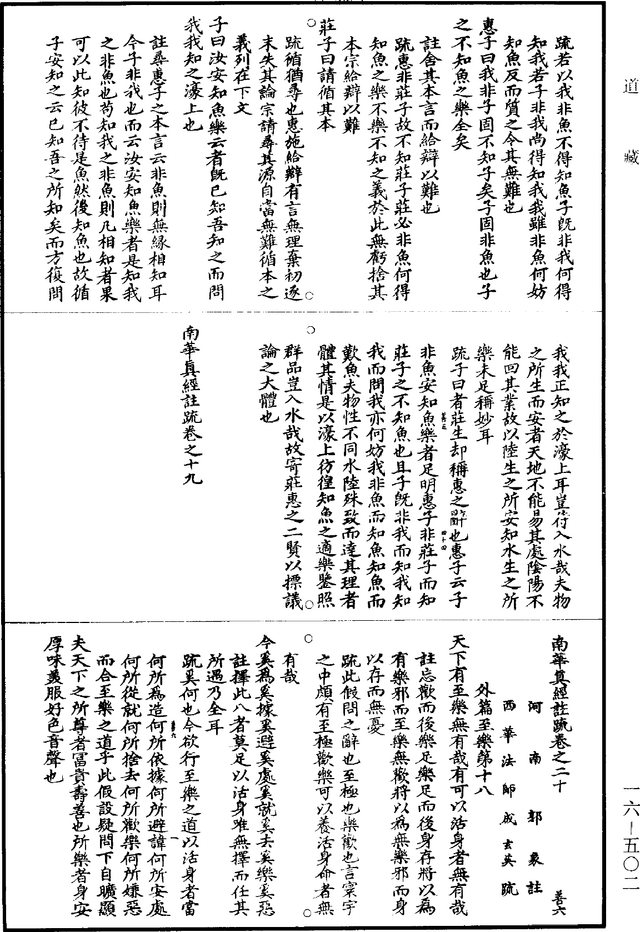 道藏
疏若以我非魚不得知魚子旣非我何得
知我若子非我尚得知我我雖非魚何妨
知魚反而質之令其無難也
惠子曰我非子固不知子矣子固非魚也子
之不知魚之樂全矣
註舍其本言而給辯以難也
疏惠非莊子故不知莊子莊必非魚何得
知魚之樂不樂不知之義於此無虧捨其
本宗給辯以難
莊子曰請循其本
疏循猶尋也惠施給辯有言無理棄初逐
末失其論宗請尋其源自當無難循本之
義列在下文
子曰汝安知魚樂云者旣已知吾知之而問
我我知之濠上也
註尋惠子之本言云非魚則無緣相知耳
今子非我也而云汝安知魚樂者是知我
之非魚也苟知我之非魚則凡相知者果
可以此知彼不待是魚然後知魚也故循
子安知之云已知吾之所知矣而方復問
我我正知之於濠上耳豈待入水哉夫物
之所生而安者天地不能易其處陰陽不
能回其業故以陸生之所安知水生之所
樂未足稱妙耳
疏子曰者莊生却稱惠之辭也惠子云子
非魚安知魚樂者足明惠子非莊子而知
莊子之不知魚也且子旣非我而知我知
我而問我亦何妨我非魚而知魚知魚而
歎魚夫物性不同水陸殊致而達其理者
體其情是以濠上彷徨知魚之適樂鑒照
群品豈入水哉故寄莊惠之二賢以標議
論之大體也
南華眞經註疏卷之十九
南華眞經註疏卷之二十
河南郭象註
西華法師成玄英疏
外篇至樂第十八
天下有至樂無有哉有可以活身者無有哉
註忘歡而後樂足樂足而後身存將以為
有樂邪而至樂無歡將以為無樂邪而身
以存而無憂
疏此假問之辭也至極也樂歡也言寰宇
之中頗有至極歡樂可以養活身命者無
有哉
今奚為奚據奚避奚處奚就奚去奚樂奚惡
註擇此八者莫足以活身唯無擇而任其
所遇乃全耳
疏奚何也今欲行至樂之道以活身者當
何所為造何所依據何所避諱何所安處
何所從就何所捨去何所歡樂何所嫌惡
而合至樂之道乎此假設疑問下自曠顯
夫天下之所尊者富貴壽善也所樂者身安
厚味美服好色音聲也
善六
一六—五〇二